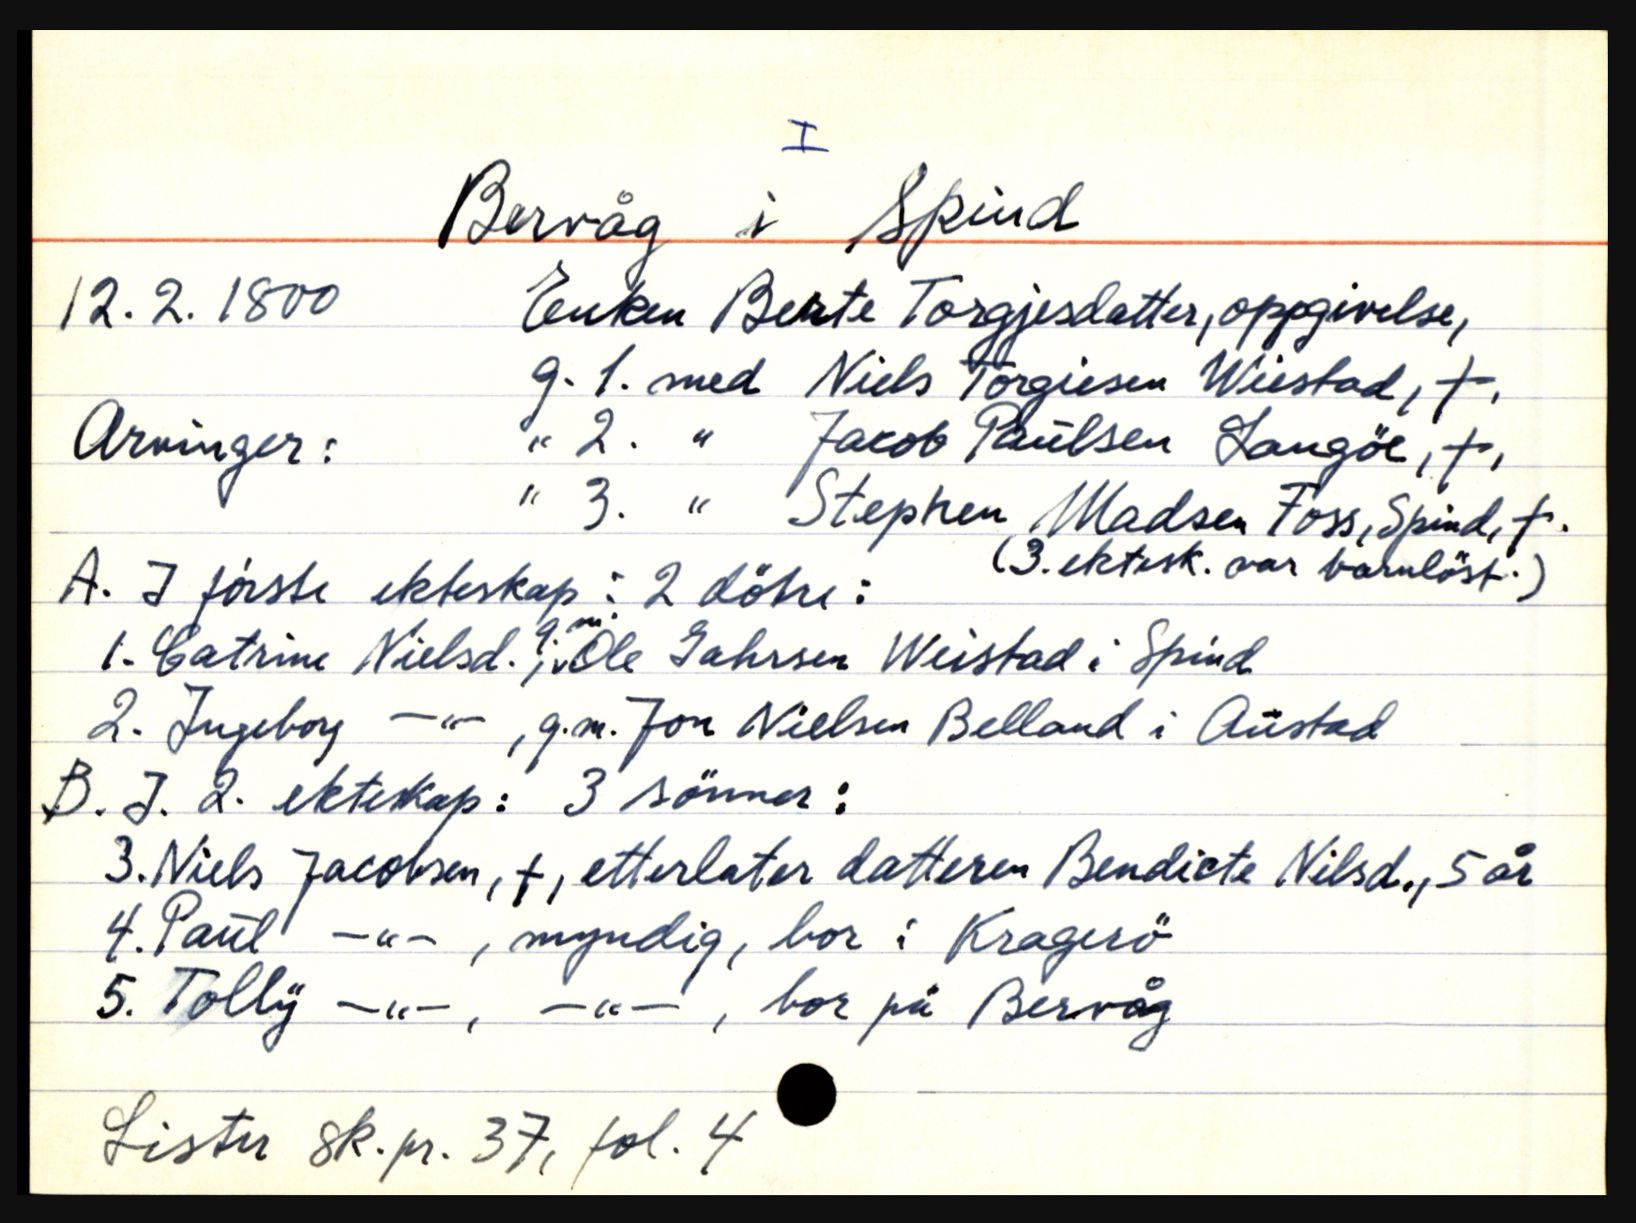 I
Bervåg i Spind
12.2.1800 Enken Berte Torgjesdatter, oppgivelse,
g. 1. med Niels Torgiesen Wiestad, †,
Arvinger: " 2. " Jacob Paulsen Langöe, †,
" 3. " Stephen Madsen Foss, Spind, †.
(3. ektesk. var barnlöst.)
A. I förste ekteskap: 2 dötre:
1. Catrine Nielsd., g.m. Ole Gahrsen Weistad i Spind
2. Ingeborg —"—, g.m. Jon Nielsen Belland i Austad
B. I. 2. ekteskap: 3 sönner:
3. Niels Jacobsen, †, etterlater datteren Bendicte Nilsd., 5 år
4. Paul —"—, myndig, bor i Kragerö
5. Tollÿ —"—, —"—, bor på Bervåg
Lister sk.pr. 37, fol. 4